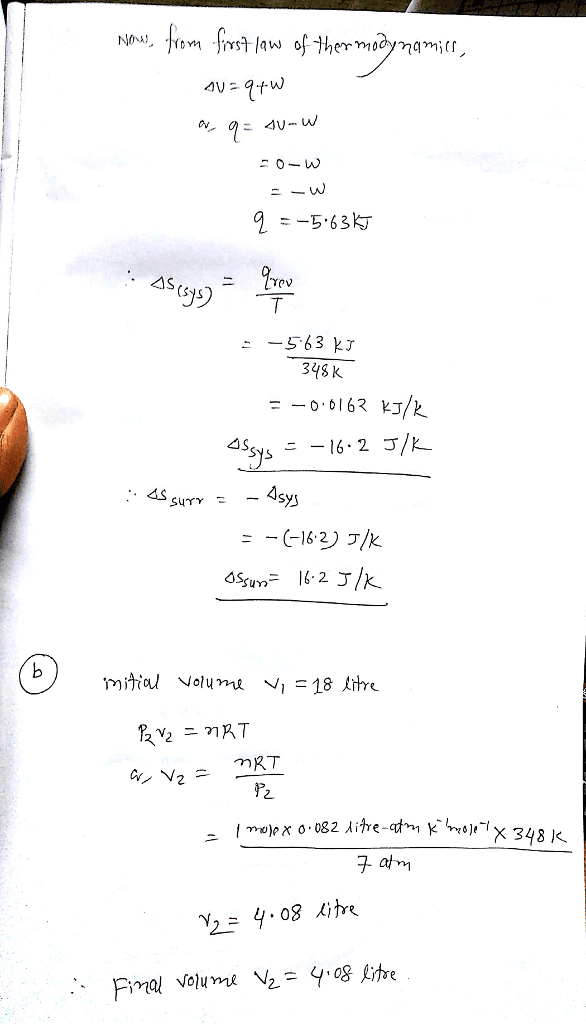 Now, from first law of thermodynamics,
ΔU = q+W
or, q = ΔU-W
= 0-W
= -W
q = -5.63 kJ
∴ ΔS(sys) = qrev / T
= -5.63 kJ / 348K
= -0.0162 kJ/K
ΔSsys = -16.2 J/K
∴ ΔSsurr = - Δsys
= -(-16.2) J/K
ΔSsurr = 16.2 J/K
(b) initial volume V1 = 18 litre
P2V2 = nRT
or, V2 = nRT / P2
= 1 mole x 0.082 litre-atm K-1mole-1 x 348 K / 7 atm
V2 = 4.08 litre
∴ Final volume V2 = 4.08 litre.